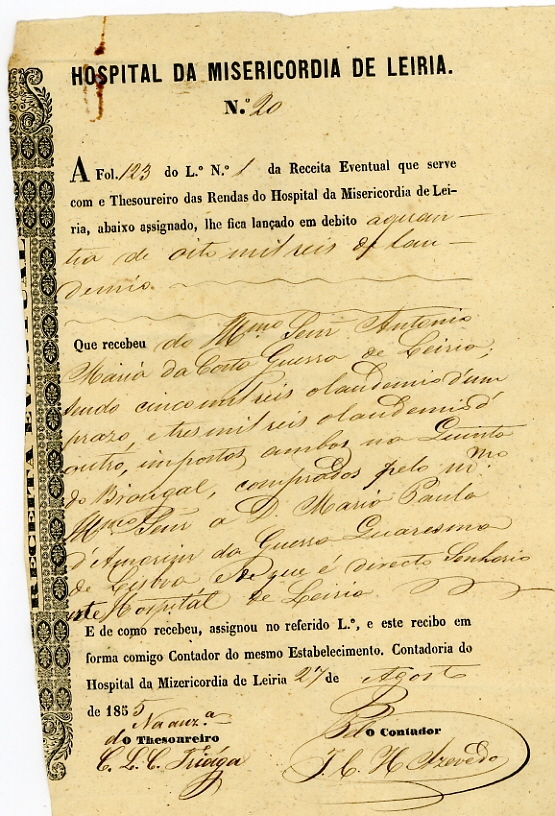 HOSPITAL DA MISERICORDIA DE LEIRIA.
N.º 20
A Fol. 123 do L.º N.º 1 da Receita Eventual que serve
com e Thesoureiro das Rendas do Hospital da Misericordia de Lei-
ria, abaixo assignado, lhe fica lançado em debito a quan-
tia de oito mil reis de lau-
demio.
Que recebeu do Illmo Senr Antonio
Maria da Costa Guerra de Leiria,
sendo cinco mil reis o laudemio d'um
prazo, e tres mil reis o laudemio d'
outro, impostos ambos na Quinta
do Biaugal, comprados pelo mmo
Illmo Senr a D. Maria Paula
d'Amorim da Guerra Quaresma
de Lisboa e de que é directo Senhorio
este Hospital de Leiria.
E de como recebeu, assignou no referido L.º, e este recibo em
forma comigo Contador do mesmo Estabelecimento. Contadoria do
Hospital da Mizericordia de Leiria 27 de Agosto
de 1855
Na auz.a
do O Thesoureiro
O Contador
C. L. C.
J. C. H. Azevedo
RECEITA EVENTUAL